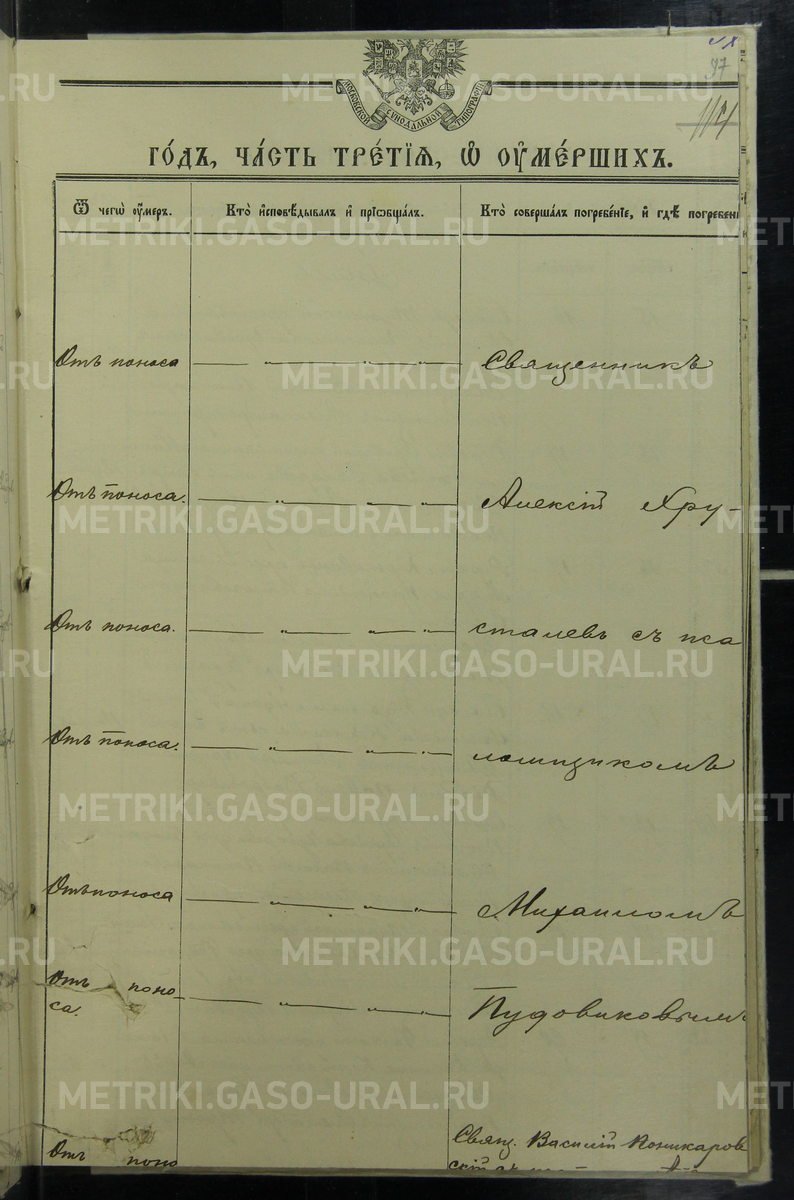 97
МОСКОВСКОЙ СУНОДАЛЬНОЙ ТИПОГРАФІИ
ГО́ДЪ, ЧА́СТЬ ТРЕ́ТІѦ, Ѡ҆ ОУ҆МЕ́РШИХЪ.
Ѿ чегѡ̀ оу҆́меръ.
Кто̀ и҆сповѣ́дывалъ и҆ прїѡбща́лъ.
Кто̀ соверша́лъ погребе́нїе, и҆ гдѣ̀ погребен
Отъ поноса — „ — „ — „ — Священникъ
Отъ поноса. — „ — „ — „ — Алексій Хру-
Отъ поноса. — „ — „ — „ — сталевъ съ пса
Отъ поноса. — „ — „ — „ — ломщикомъ
Отъ поноса — „ — „ — „ — Михаиломъ
Отъ поно-
са. — „ — „ — „ — Пудовиковымъ
Отъ поно
Свящ. Василій
METRIKI.GASO-URAL.RU